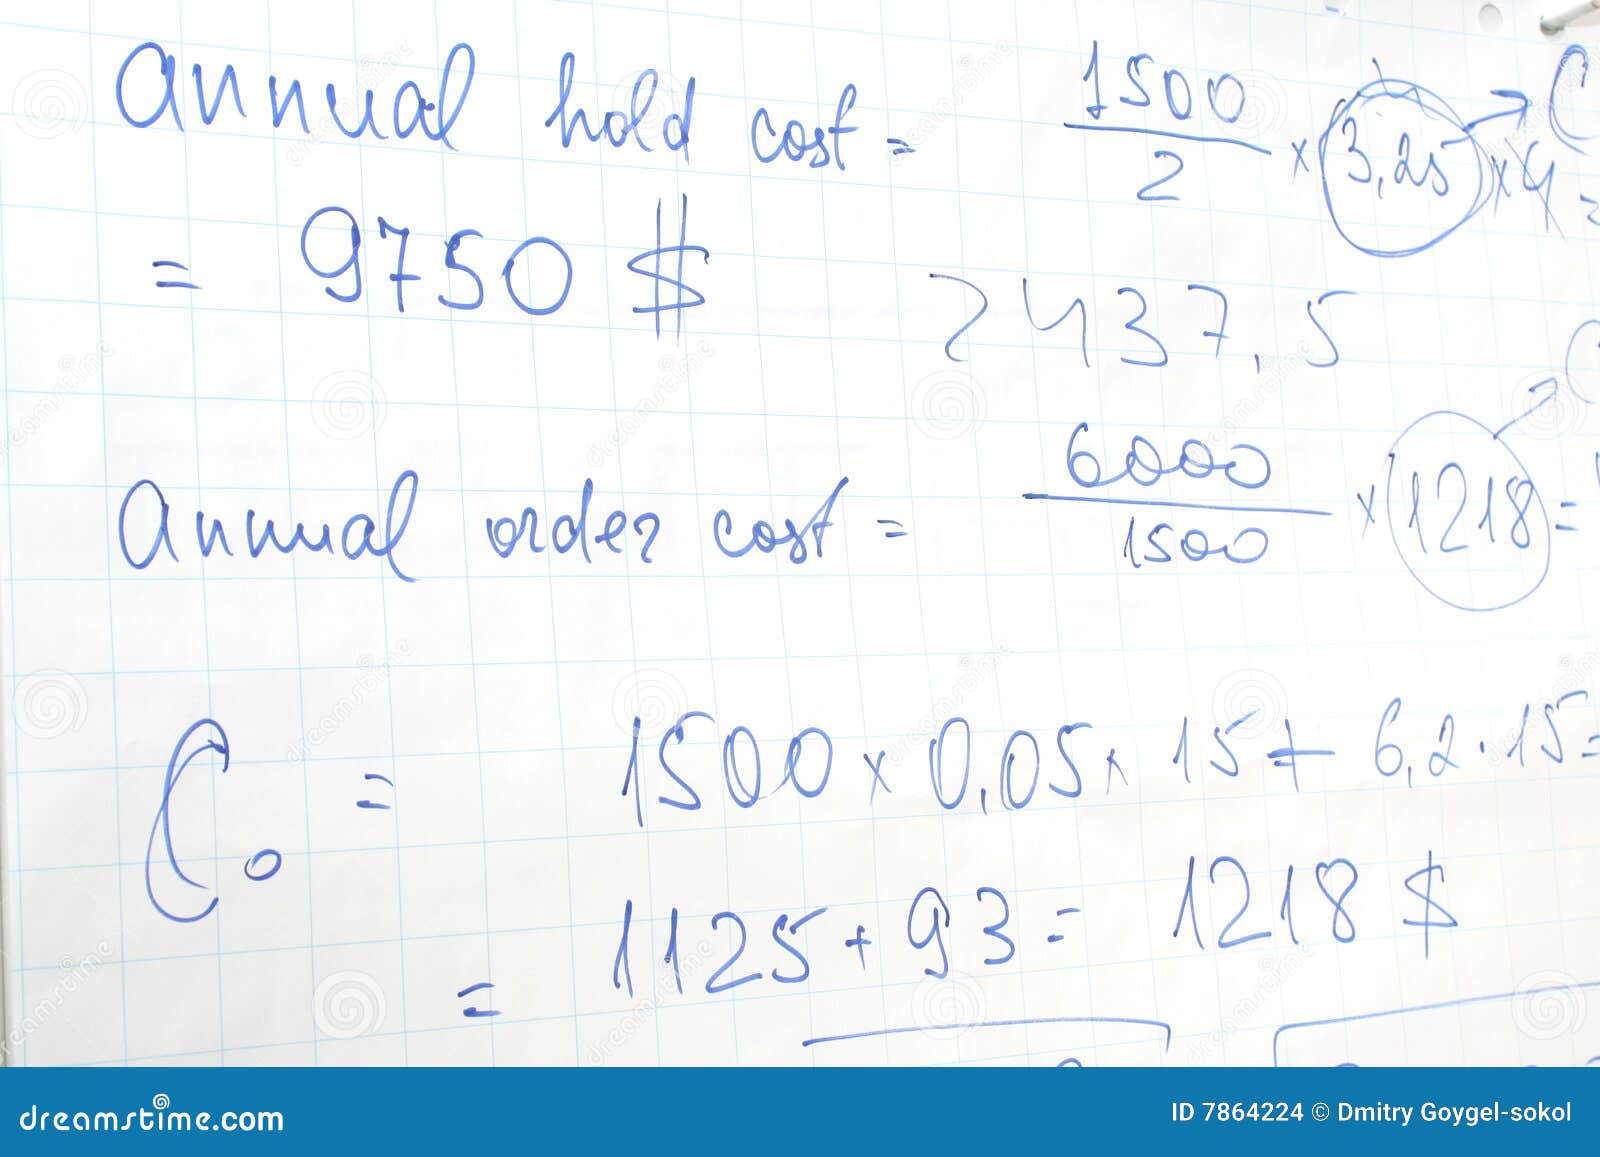 annual hold cost = 1500/2 × 3,25 × 4 =
= 9750 $
2437,5
Annual order cost = 6000/1500 × 1218 =
C₀ = 1500 × 0,05 × 15 + 6,2 · 15 =
= 1125 + 93 = 1218 $
dreamstime.com
ID 7864224 © Dmitry Goygel-sokol